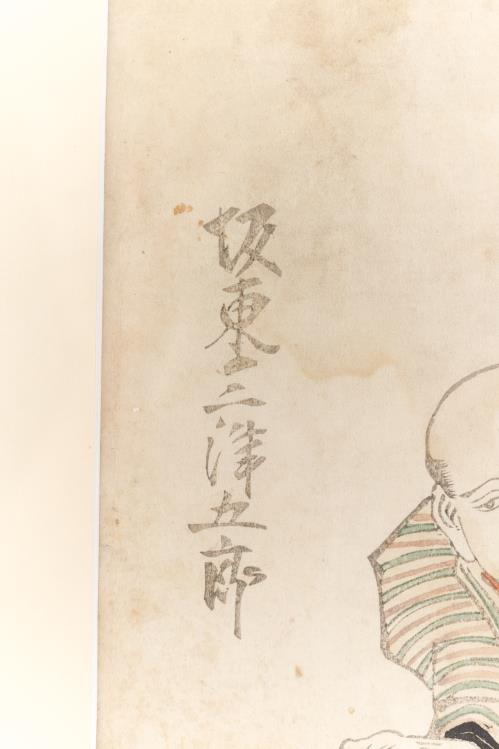 坂東三津五郎